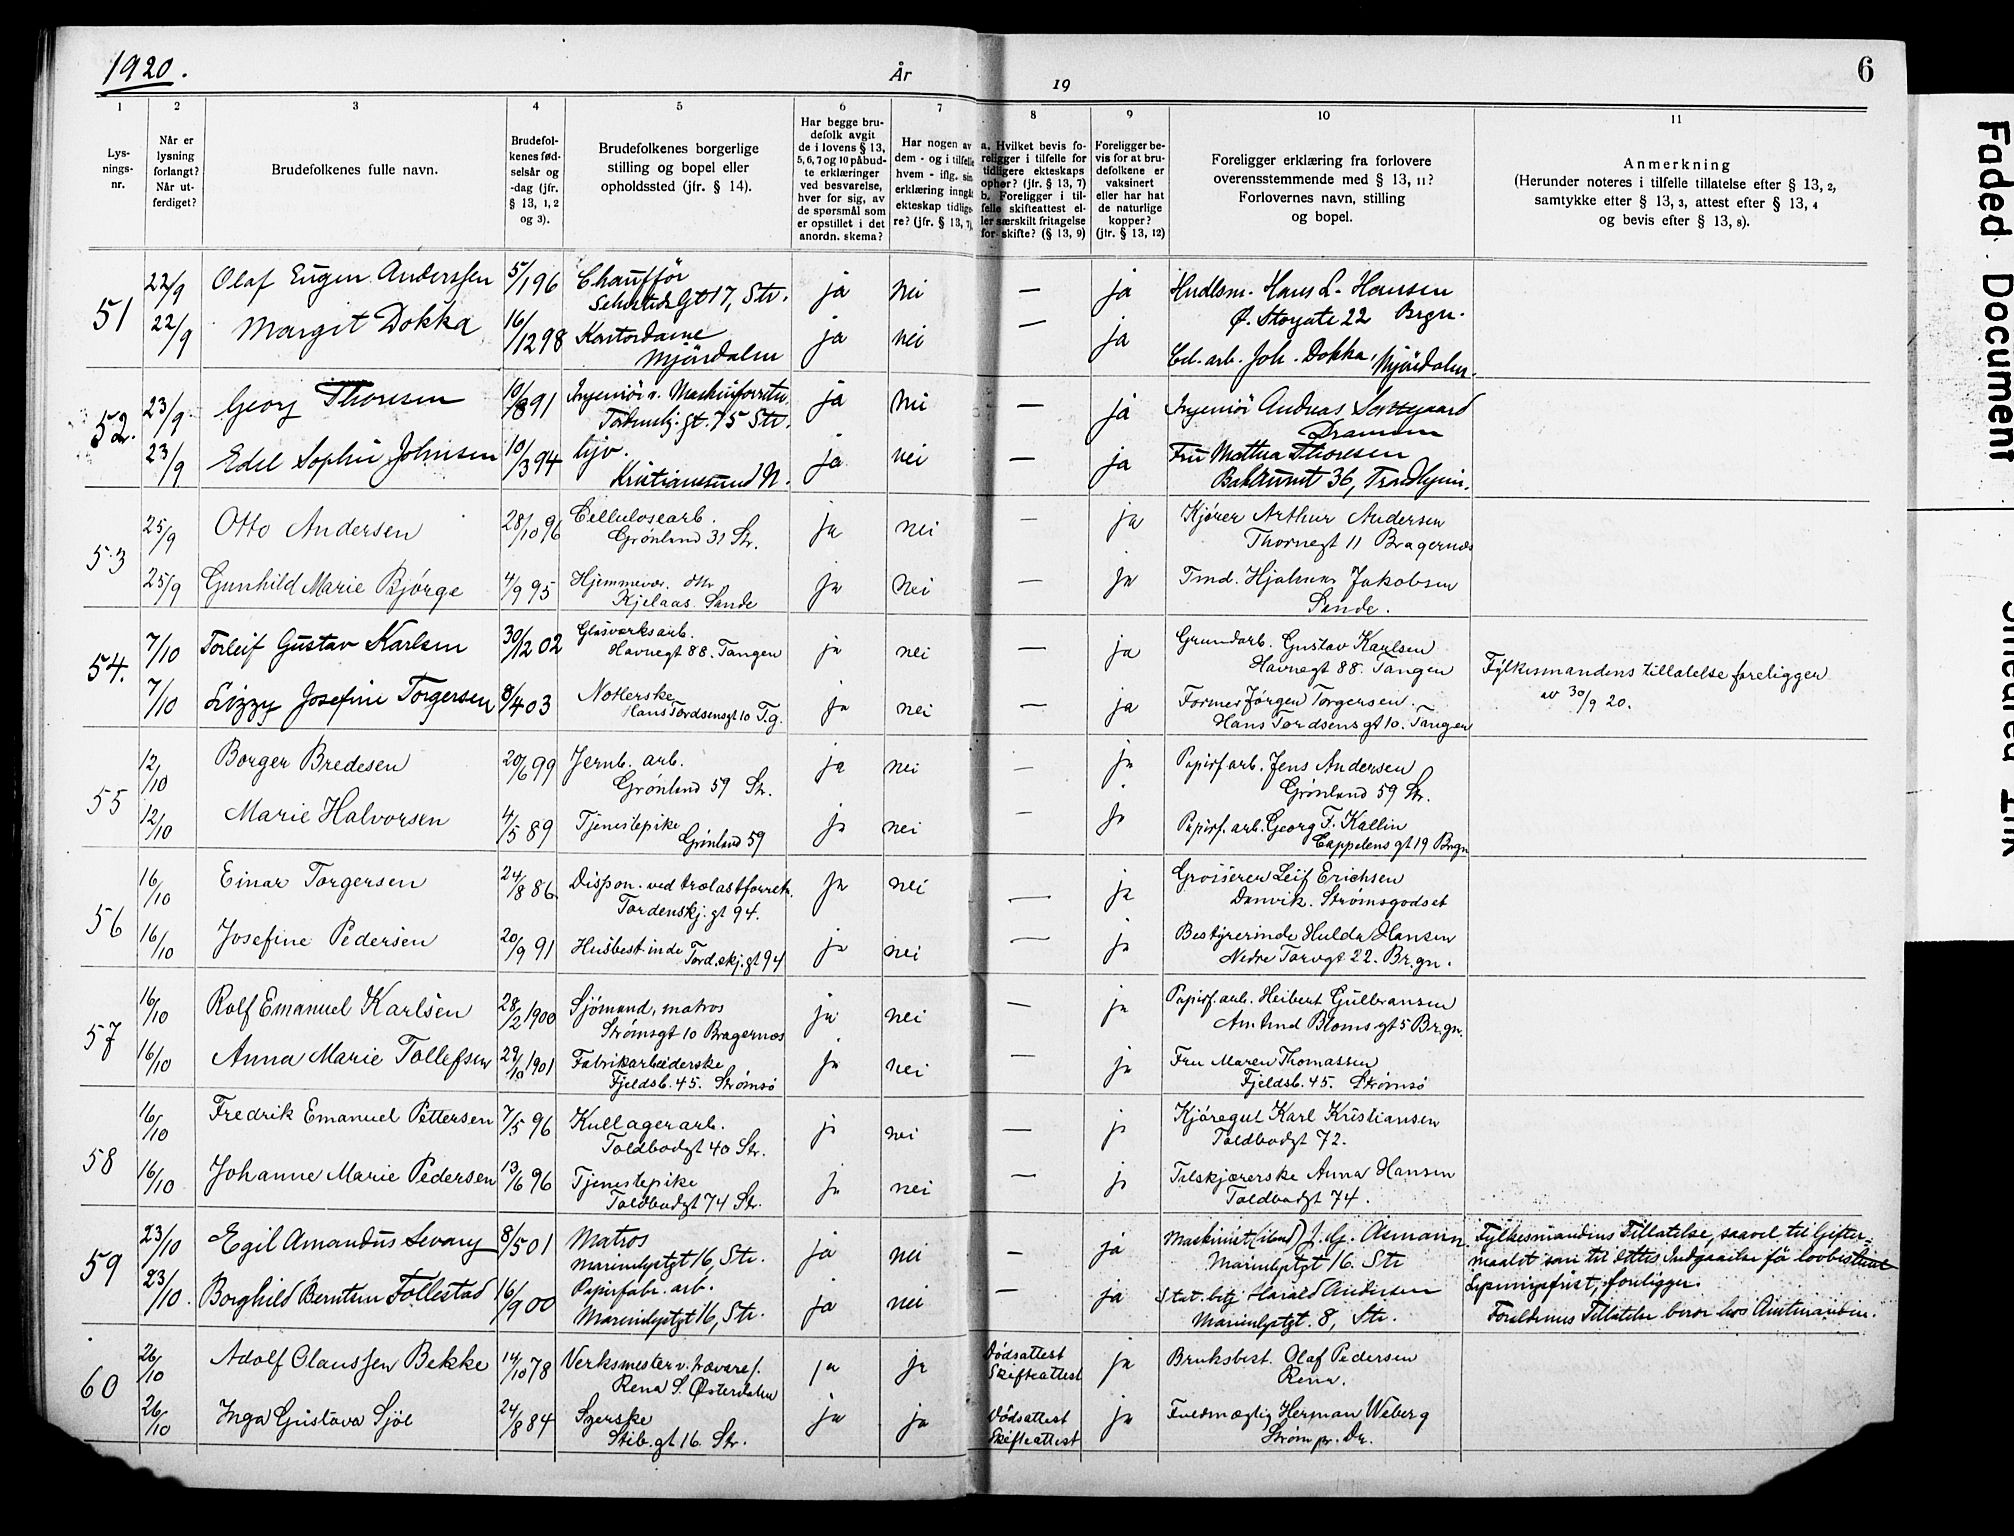 1920.
År
19
6
1
2
3
4
5
6
7
8
9
10
11
Lys-
nings-
nr.
Når er
lysning
forlangt?
Når ut-
ferdiget?
Brudefolkenes fulle navn.
Brudefol-
kenes fød-
selsår og
-dag (jfr.
§ 13, 1, 2
og 3).
Brudefolkenes borgerlige
stilling og bopel eller
opholdssted (jfr. § 14).
Har begge bru-
defolk avgit
de i lovens § 13,
5, 6, 7 og 10 påbud-
te erklæringer
ved besvarelse,
hver for sig, av
de spørsmål som
er opstillet i det
anordn. skema?
Har nogen av
dem - og i tilfelle
hvem - iflg. sin
erklæring inngåt
ekteskap tidlige-
re? (jfr. § 13, 7).
a. Hvilket bevis fo-
religger i tilfelle for
tidligere ekteskaps
ophør? (jfr. § 13, 7)
b. Foreligger i til-
felle skifteattest el-
ler særskilt fritagelse
for skifte? (§ 13, 9)
Foreligger be-
vis for at bru-
defolkene er
vaksinert
eller har hat
de naturlige
kopper?
(jfr. § 13, 12)
Foreligger erklæring fra forlovere
overensstemmende med § 13, 11?
Forlovernes navn, stilling
og bopel.
Anmerkning
(Herunder noteres i tilfelle tillatelse efter § 13, 2,
samtykke efter § 13, 3, attest efter § 13, 4
og bevis efter § 13, 8).
51
22/9 Olaf Eugen Anderssen 5/1 96 Chauffør ja nei — ja Hndlsm. Hans L. Hansen
Gt 17, Str. Ø. Storgate 22 Brgn.
22/9 Margit Dokka 16/12 98 Kontordame ja nei — ja Joh. Dokka, Mjøndalen.
Mjøndalen
52.
23/9 Georg Thoresen 10/8 91 Ingeniør v. Maskinforretn. ja nei — ja Ingeniør Andreas
Tordenskj. gt. 75 Str. Drammen
23/9 Edel Sophie Johnsen 10/3 94 ja nei — ja Fru Mathea Thoresen
Kristianssund N. Bakkaunet 36, Trondhjem.
53
25/9 Otto Andersen 28/10 96 Cellulosearb. ja nei — ja Kjører Arthur Andersen
Grønland 31 Str. Thornegt 11 Bragernæs
25/9 Gunhild Marie Bjørge 4/9 95 Hjemmevær. ja nei — ja Tmd. Hjalmar Jakobsen
Kjelaas Sande Sande.
54.
7/10 Torleif Gustav Karlsen 30/12 02 Glasværksarb. ja nei — ja Grundarb. Gustav Karlsen
Havnegt 88. Tangen Havnegt 88. Tangen Fylkesmandens tillatelse foreligger
7/10 Lizzy Josefine Torgersen 8/4 03 ja nei — ja Former Jørgen Torgersen. av 30/9 20.
Hans Tordsensgt 10 T.g. Hans Tordsens gt 10. Tangen
55
12/10 Borger Bredesen 20/6 99 Jernb. arb. ja nei — ja Papirf arb. Jens Andersen
Grønland 59 Str. Grønland 59 Str.
12/10 Marie Halvorsen 4/5 89 Tjenestepike ja nei — ja Papirf. arb. Georg F. Kallin
Grønland 59 Cappelens gt 19 Brgn
56
16/10 Einar Torgersen 24/8 86 Dispon. ved trælastforretn. ja nei — ja Grosserer Leif Erichsen
Tordenskj. gt 94. Danvik. Strømsgodset
16/10 Josefine Pedersen 20/9 91 Husbestinde ja nei — ja Bestyrerinde Hulda Hansen
Tord.skj. gt 94 Nedre Torvgt 22. Br.gn.
57
16/10 Rolf Emanuel Karlsen 28/2 1900 Sjømand, matros ja nei — ja Papirf. arb. Heibert Gulbransen
Strømsgt 10 Bragernæs Amtmd Bloms gt 5 Br.gn.
16/10 Anna Marie Tollefsen 29/10 1901 Fabrikarbeiderske ja nei — ja Fru Maren Thomassen
Fjeldsb. 45. Strømsø Fjeldsb. 45. Strømsø
58
16/10 Fredrik Emanuel Pettersen 7/5 96 Kullagerarb. ja nei — ja Kjøregut Karl Kristiansen
Toldbodgt 40 Str. Toldbodgt 72.
16/10 Johanne Marie Pedersen 13/6 96 Tjenestepike ja nei — ja Tilskjærerske Anna Hansen
Toldbodgt 74 Str. Toldbodgt 74.
59
23/10 Egil Amandus 8/5 01 Matros ja nei — ja Maskinist J. G. Asmann. Fylkesmandens Tillatelse, saavel til Gifter-
16, Str. 16. Str maalet som til dettes Indgaaelse før lovbestemt
23/10. Borghild Berntsen Follestad 16/9 00 Papirfabr. arb. ja nei — ja Stat. betj. Harald Andersen Lysningsfrist, foreligger.
16, Str. 8, Str. Forældrenes Tillatelse beror hos Amtmanden.
60
26/10 Adolf Olaussen Bekke 14/10 78 Verksmester v. trævaref. ja ja Dødsattest ja Bruksbest. Olaf Pedersen
Rena S. Østerdalen Skifteattest Rena.
26/10 Inga Gustava Sjøl 24/8 84 Syerske ja ja Dødsattest ja Fuldmægtig Herman Weberg
Stib. gt 16. Str. Skifteattest Strøm pr. Dr.
Faded Document
Smeared Ink